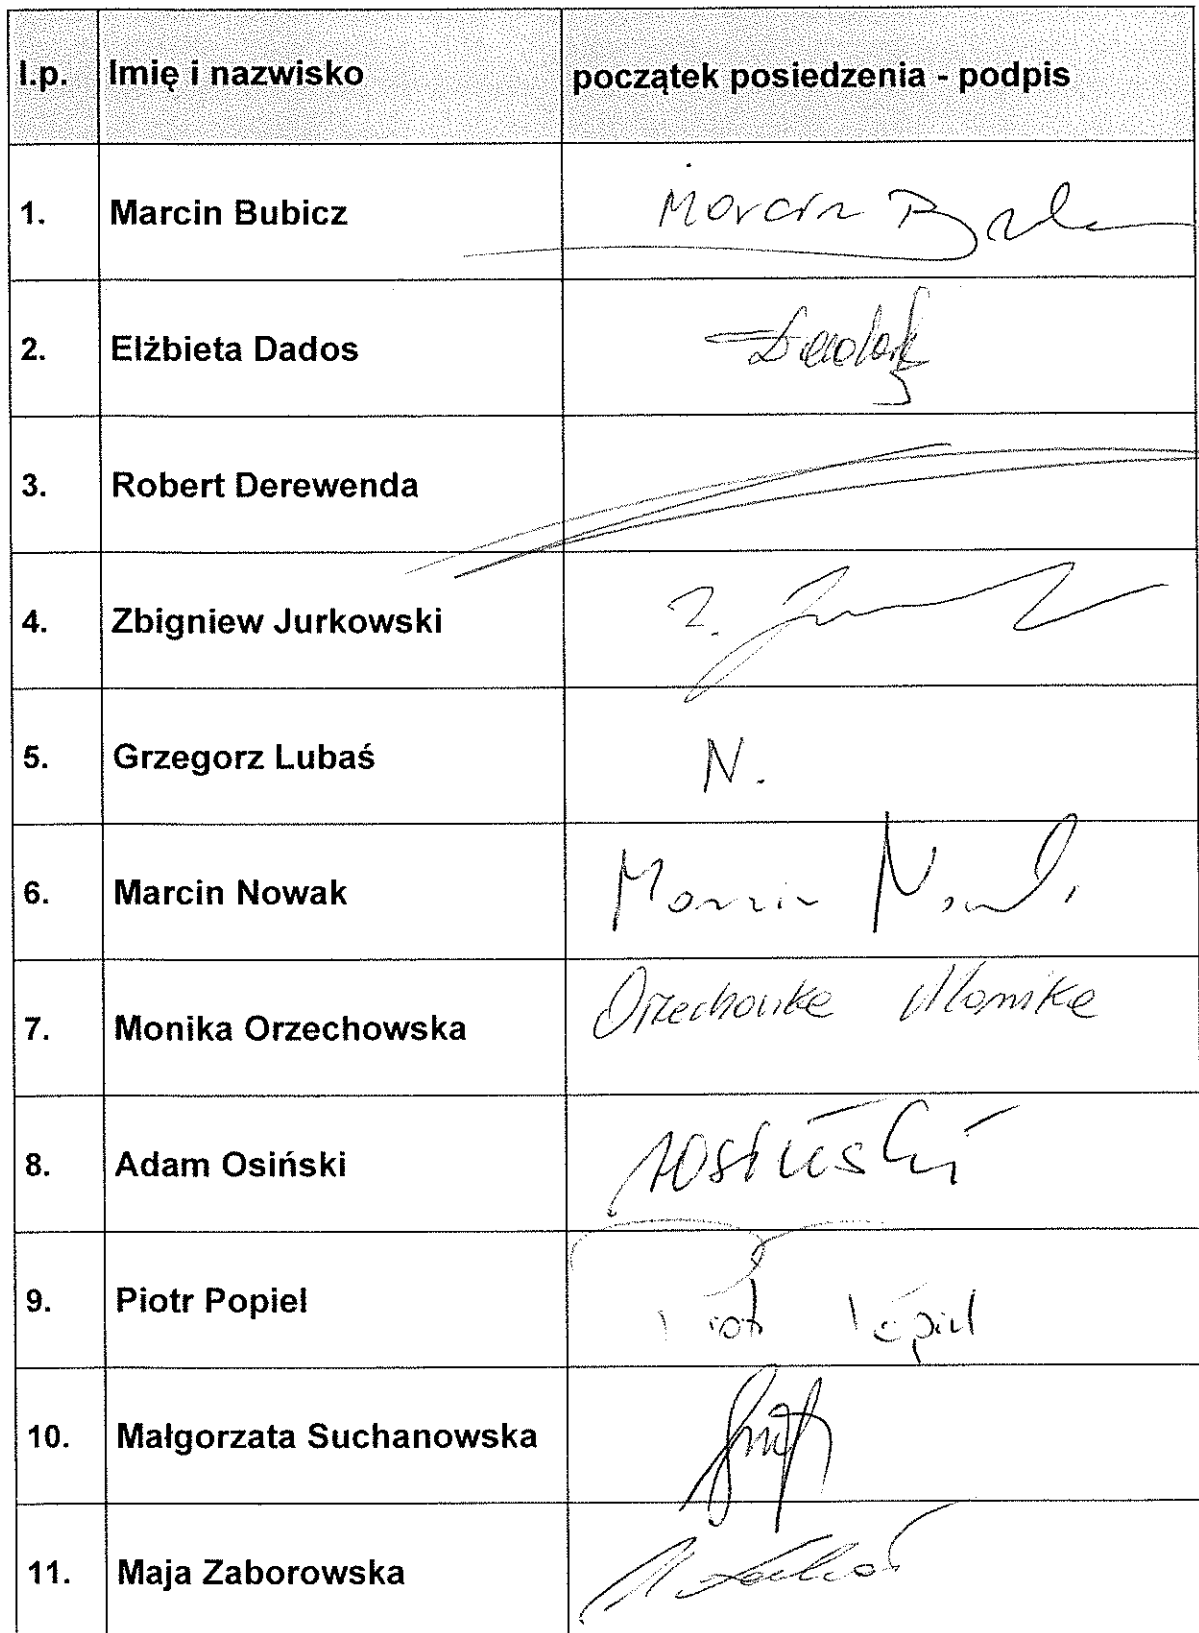 l.p. Imię i nazwisko początek posiedzenia - podpis
1. Marcin Bubicz Marcin
2. Elżbieta Dados
3. Robert Derewenda
4. Zbigniew Jurkowski Z.
5. Grzegorz Lubaś N.
6. Marcin Nowak Marcin Nowak
7. Monika Orzechowska Orzechowska Monika
8. Adam Osiński AOsiński
9. Piotr Popiel Piotr Popiel
10. Małgorzata Suchanowska
11. Maja Zaborowska